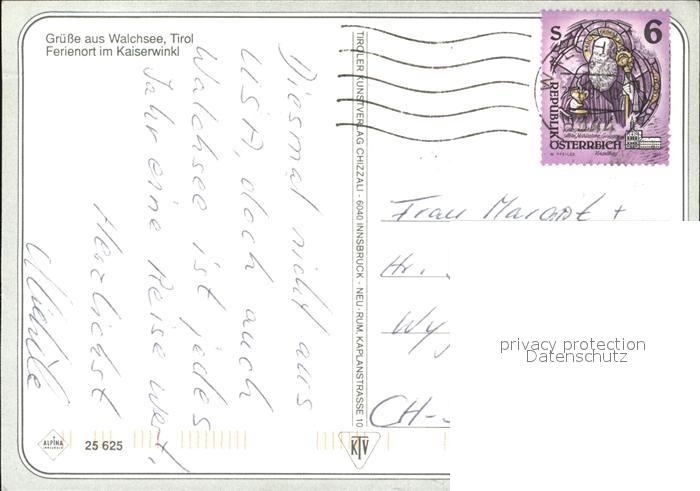 Grüße aus Walchsee, Tirol
Ferienort im Kaiserwinkl
Diesmal nicht aus
USA, doch auch
Walchsee ist jedes
Jahr eine Reise wert!
Herzlichst
TIROLER KUNSTVERLAG CHIZZALI · 6040 INNSBRUCK - NEU-RUM, KAPLANSTRASSE 10
S 6
REPUBLIK
ÖSTERREICH
Frau Margot +
Hr.
CH-
privacy protection
Datenschutz
ALPINA
25 625
KTV